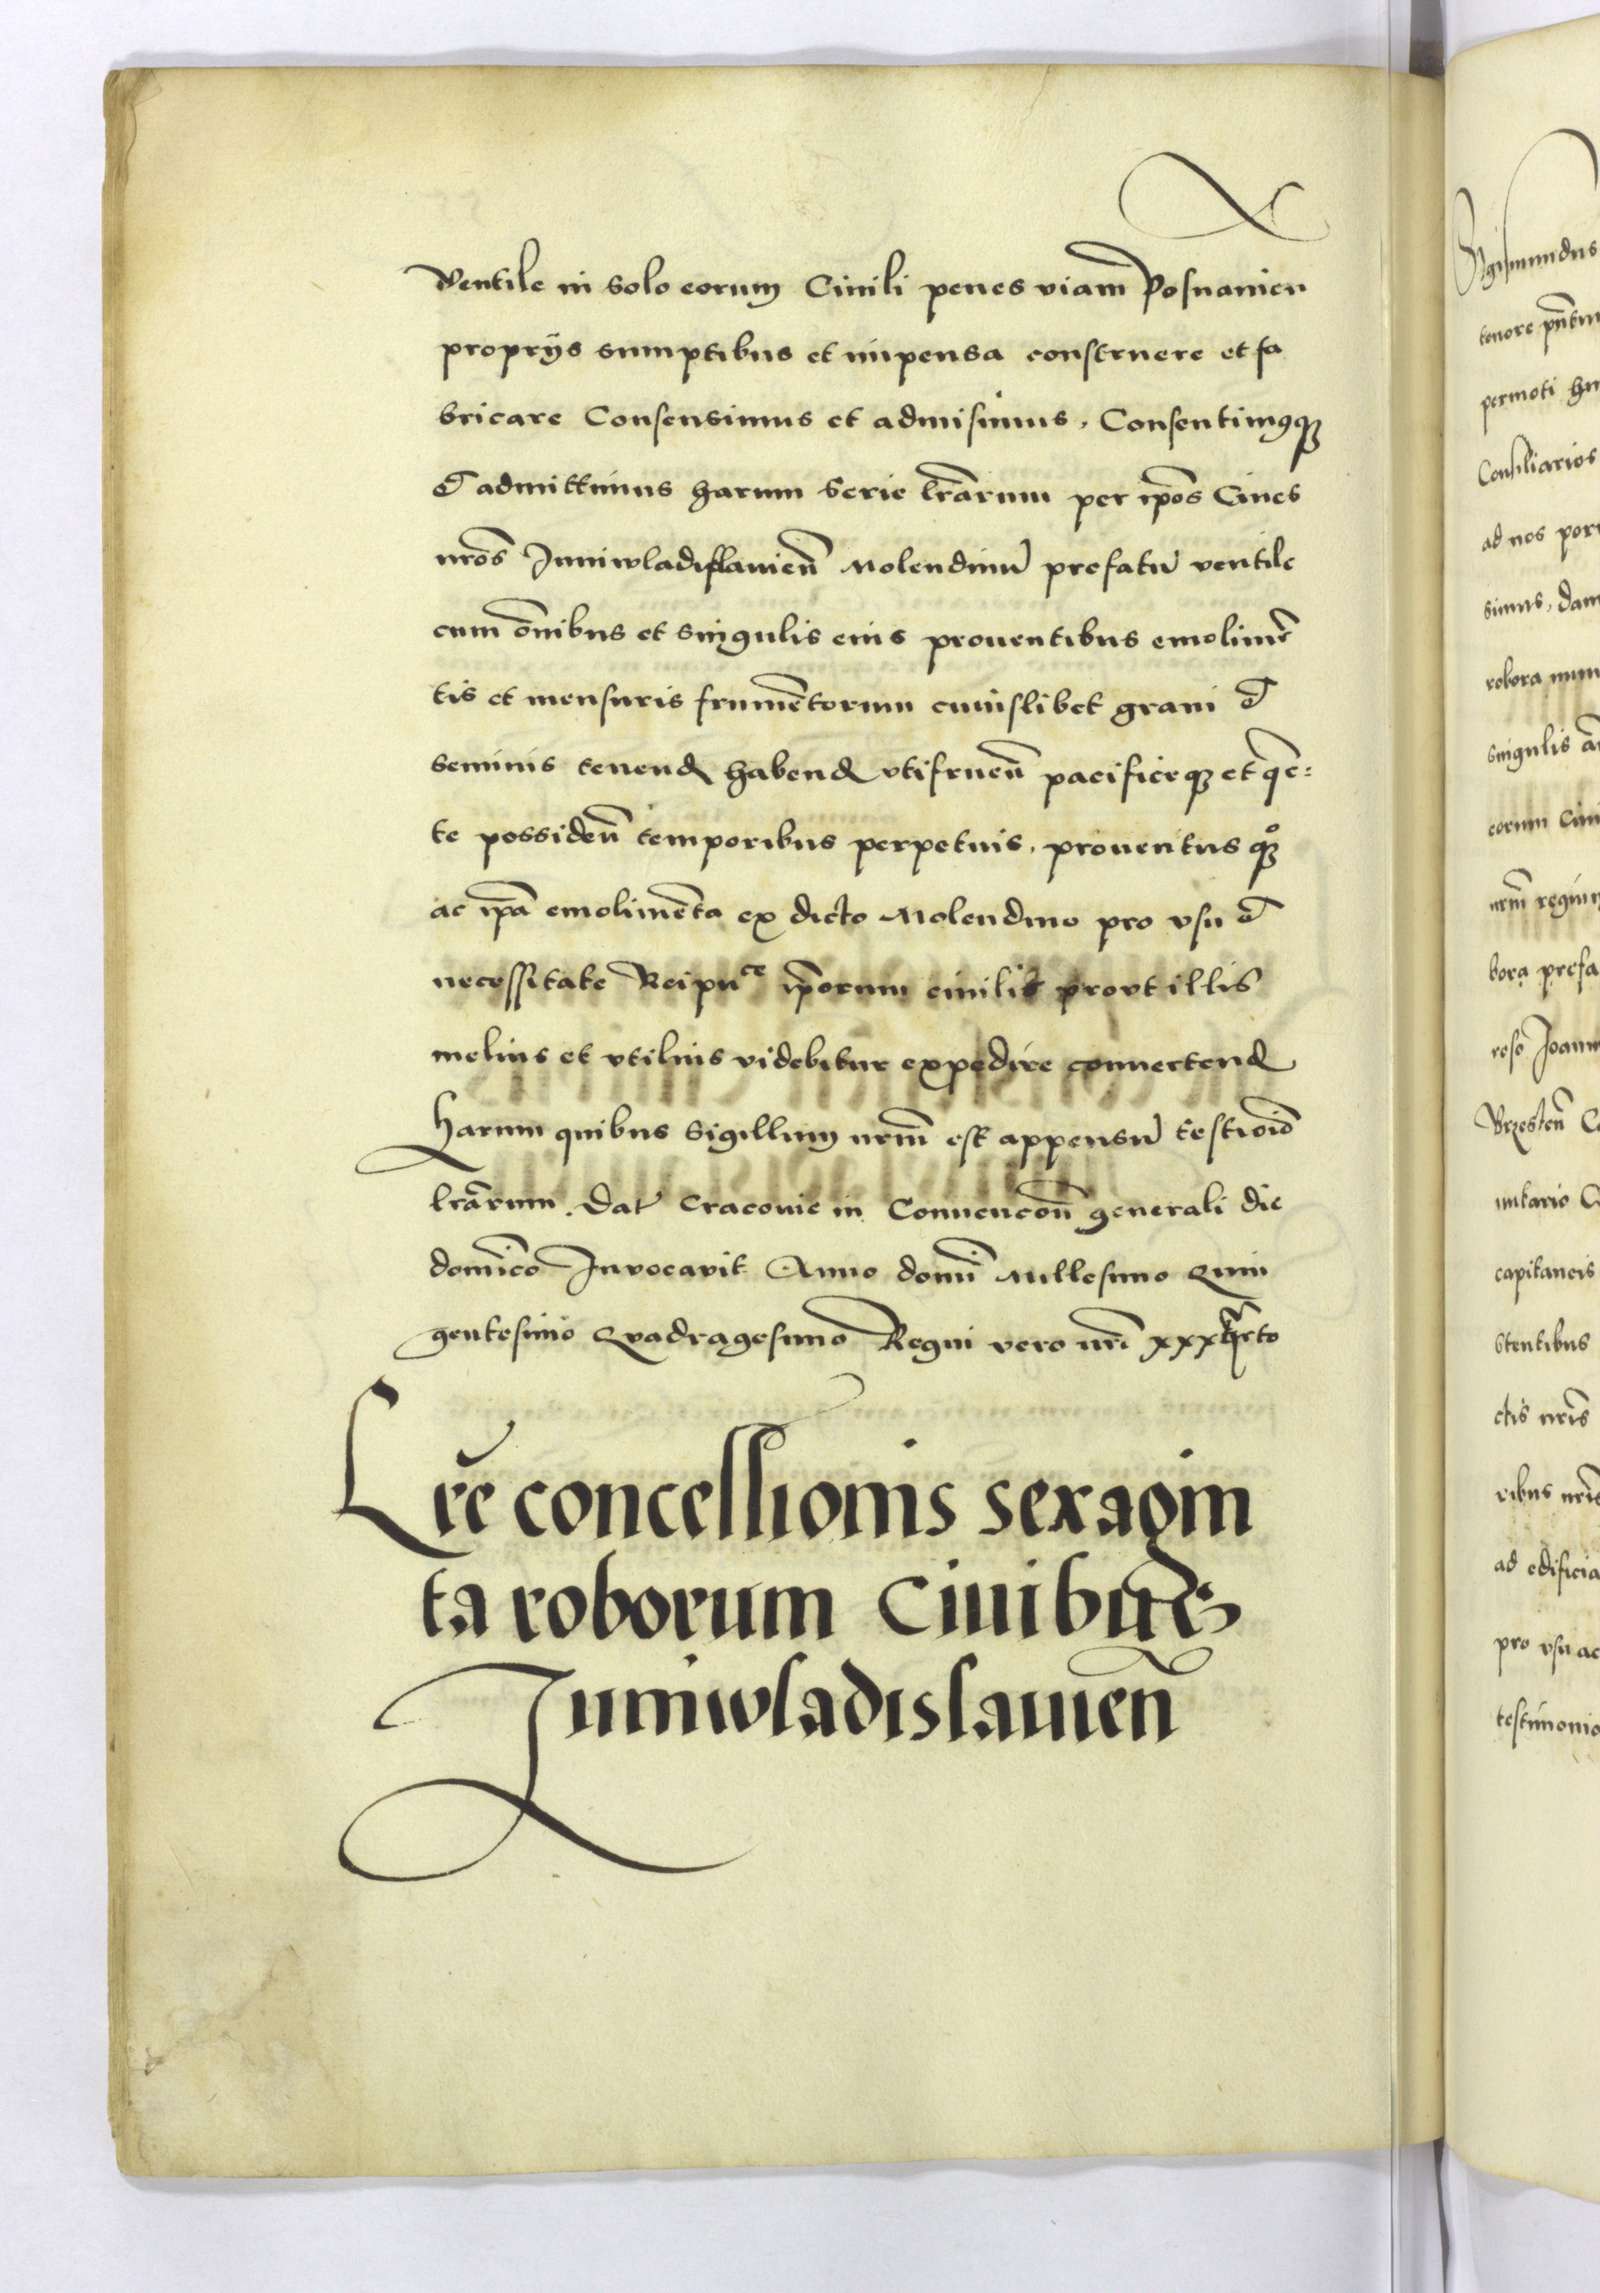 Ventile in solo eorum Ciuili penes viam Posnanien
proprijs sumptibus et impensa construere et fa
bricare Consensimus et admisimus, Consentimusque
et admittimus harum serie lrarum per ipos Ciues
nros Juniwladislauien Molendinu prefatu ventile
cum omibus et singulis eius prouentibus emolimen
tis et mensuris frumetorum cuiuslibet grani et
seminis tenend habend vtifruen pacificeque et qe=
te possiden temporibus perpetuis, prouentus quoque
ac ipa emolimeta ex dicto Molendino pro vsu et
necessitate Reipuce iporum ciuilis prout illis
melius et vtilius videbitur expedire conuertend
Harum quibus sigillum nrum est appensu testimoio
lrarum. Dat Cracouie in Conuencon generali die
domico Inuocauit Anno domi Millesimo Quin
gentesimo Quadragesimo Regni vero nri xxxqrto
Lre concessionis sexagin
ta roborum Ciuibus
Juniwladislauien
Sigismundus
tenore pntiu
permoti
Consiliarios
ad nos
simus, dam
robora
singulis
eorum Ciui
nrm
bora prefa
roso Joann
Brzesten
capitaneis
stentibus
ctis nris
ribus nris
ad edificia
pro vsu ac
testimonio